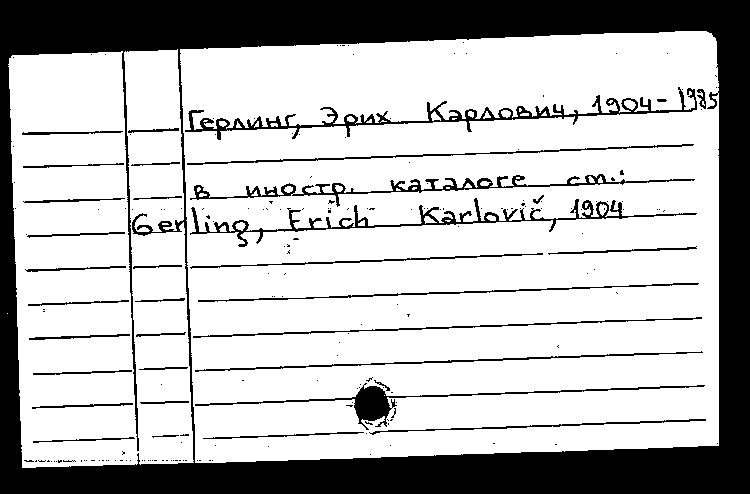 Герлинг, Эрих Карлович, 1904-1985
в иностр. каталоге см.:
Gerling, Erich Karlovič, 1904